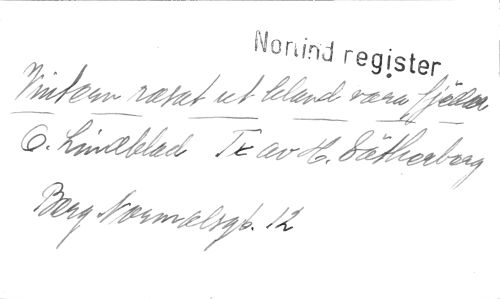 Norind register
Vintern rasat ut bland våra fjällar
O. Lindblad Tx av H. Sätherberg
Berg Normalsgb. 12